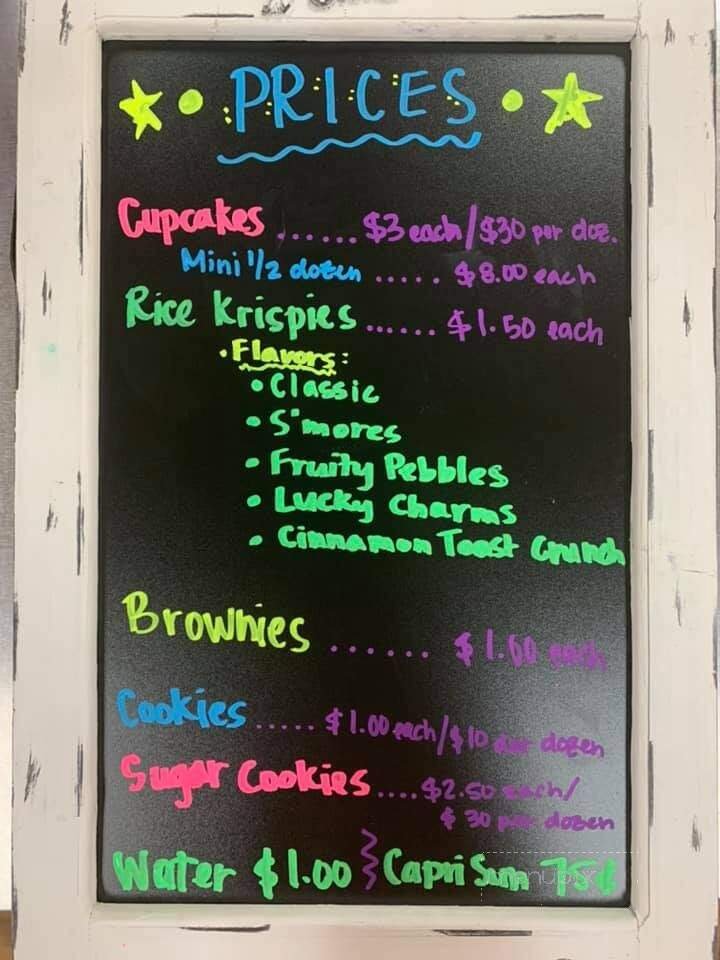 PRICES
Cupcakes ...... $3 each/$30 per doz.
Mini 1/2 dozen ..... $8.00 each
Rice Krispies ...... $1.50 each
• Flavors:
• Classic
• S'mores
• Fruity Pebbles
• Lucky Charms
• Cinnamon Toast Crunch
Brownies ...... each
Cookies ..... $1.00 each/$10 per dozen
Sugar Cookies .... $2.50 each/
$30 per dozen
Water $1.00 Capri Sum 75¢